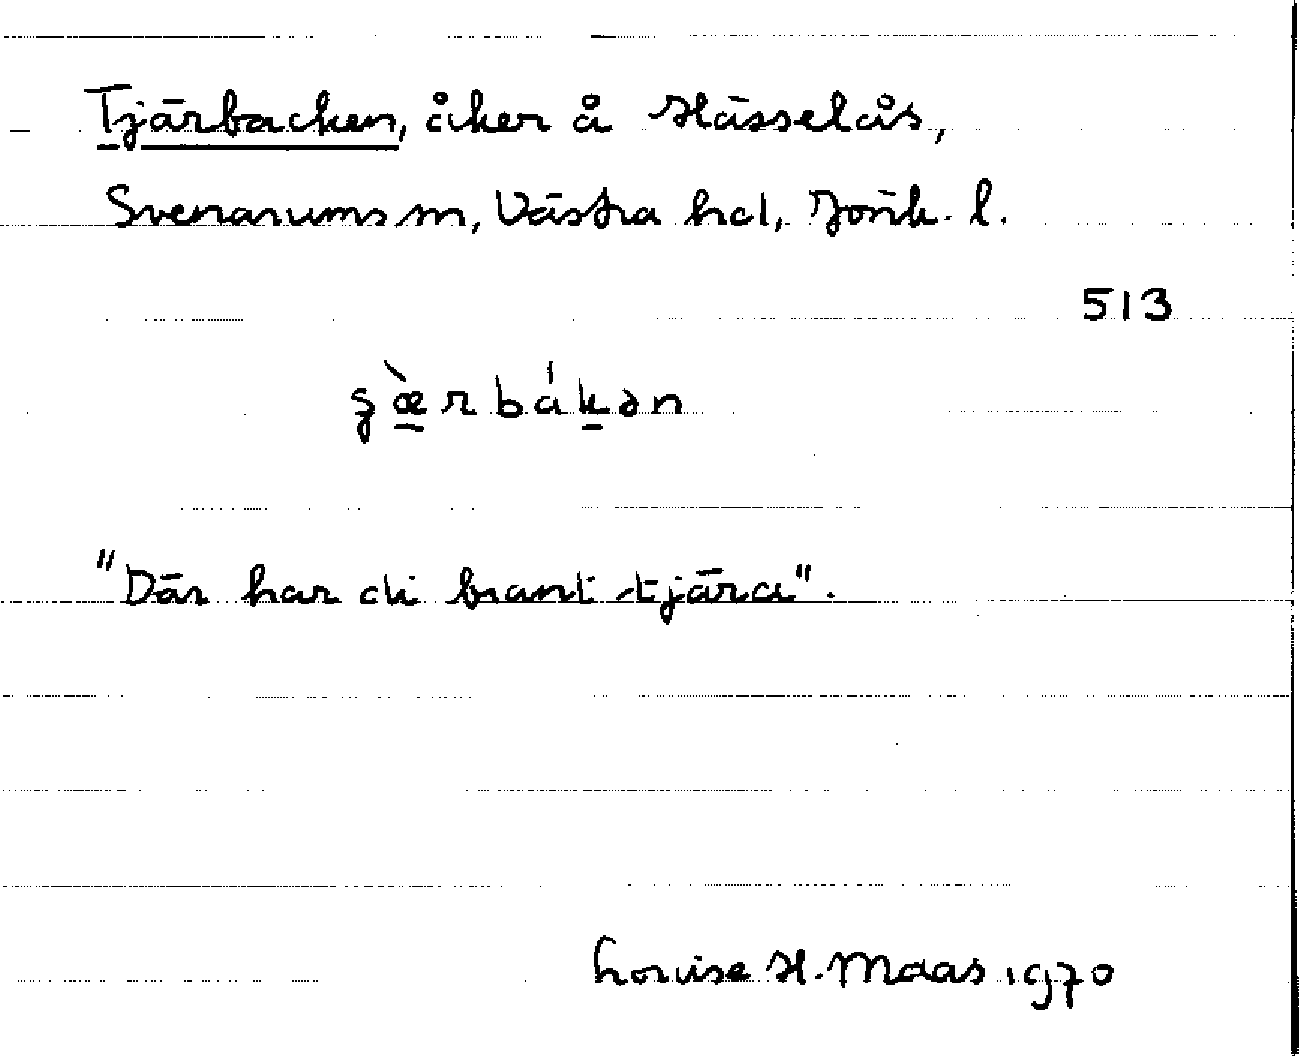 Tjärbacken, åker å Hässelås,
Svenarums sn, Västra hd, Jönk. l.
513
ʂæ̀rbákən
"Där har di brant tjära".
Louise H. Maas 1970